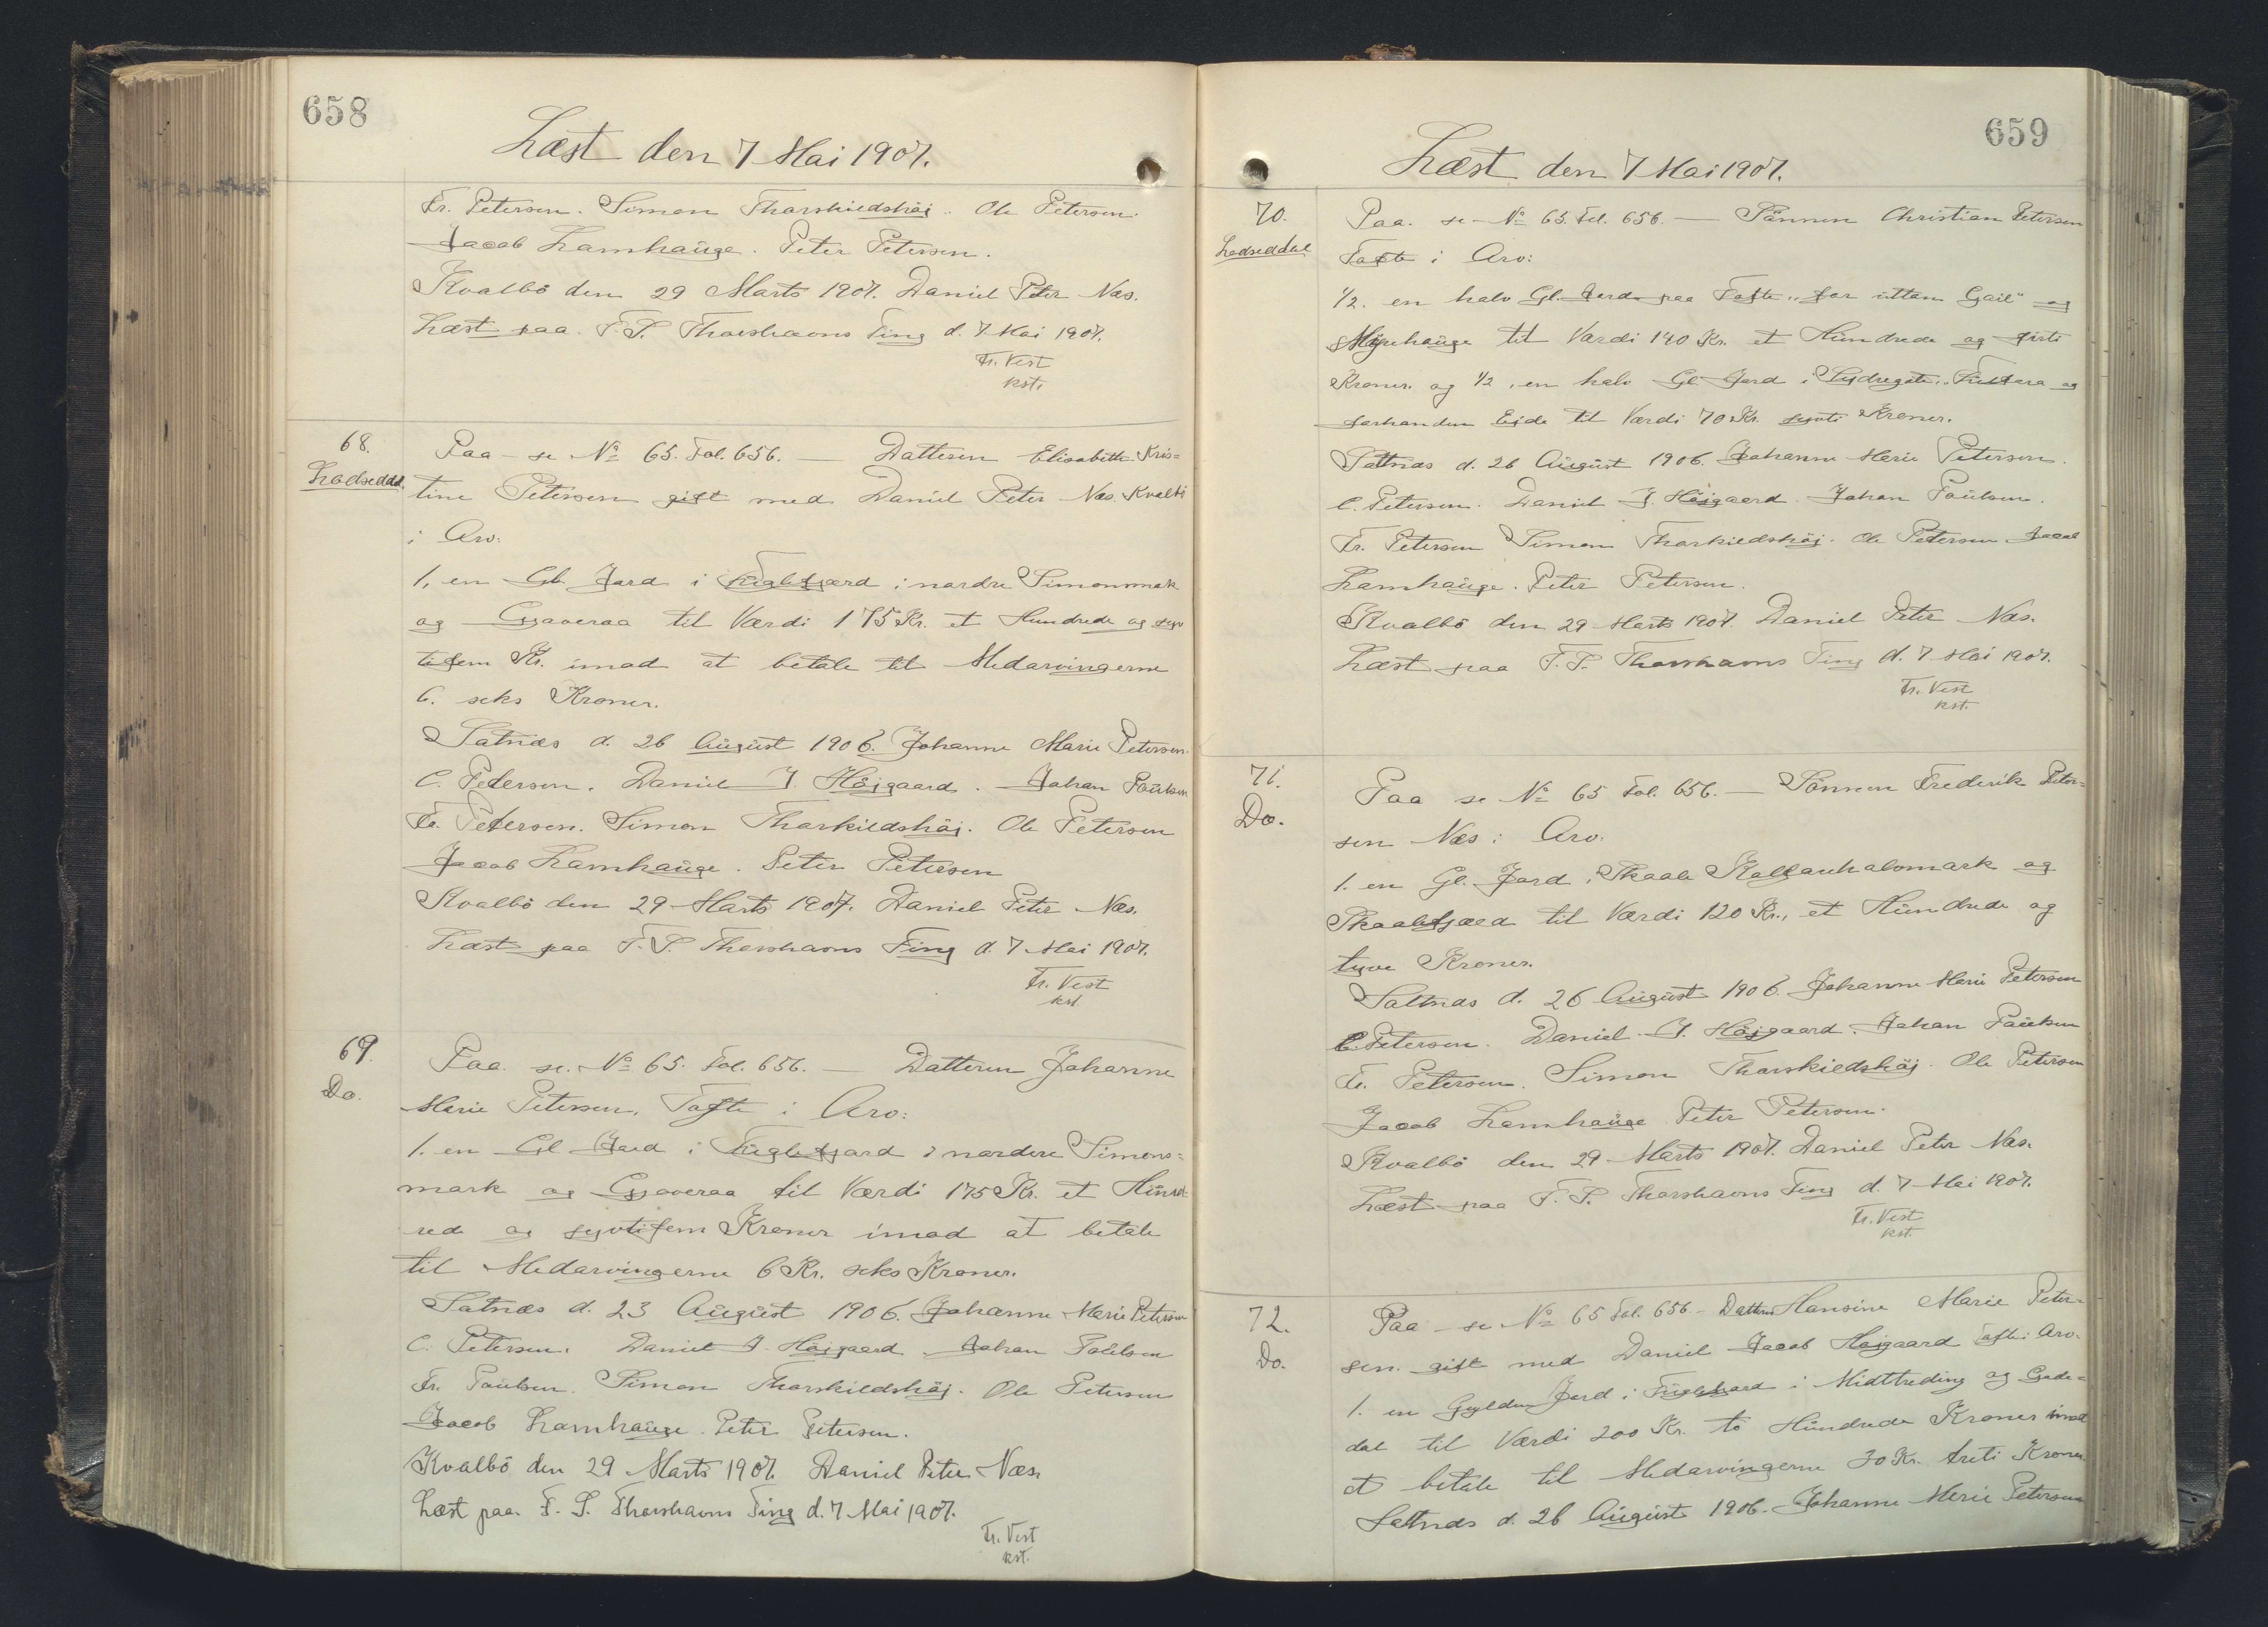 658
Læst den 7 Mai 1907.
Fr. Petersen. Simon Thorskieldshöj. Ole Petersen.
Jacob Lamhauge. Peter Petersen.
Kvalbö den 29 Marts 1907. Daniel Peter Næs.
Læst paa F. S. Thorshavns Ting d. 7 Mai 1907.
Fr. Vest
kst.
68.
Lodseddel.
Paa - se No 65. Fol. 656. — Datteren Elisabeth Kris=
tine Petersen gift med Daniel Peter Næs. Kvalbö
i Arv:
1, en Gl. Jord i Fuglefjord i nordre Simonsmark
og Gjaveraa til Værdi 175 Kr. et Hundrede og syv
tifem Kr. imod at betale til Medarvingerne
6. seks Kroner.
Saltnæs d. 26 August 1906. Johanne Marie Petersen.
C. Petersen. Daniel J. Höjgaard. Johan Poulsen
Fr. Petersen. Simon Thorkildshöj. Ole Petersen
Jacob Lamhauge. Peter Petersen
Kvalbö den 29 Marts 1907. Daniel Peter Næs.
Læst paa F. S. Thorshavns Ting d. 7 Mai 1907.
Fr. Vest
kst.
69.
Do.
Paa. se. No 65. Fol. 656. — Datteren Johanne
Marie Petersen, Tofte i Arv:
1. en Gl Jord i Fuglefjord i nordere Simons=
mark og Gjaveraa til Værdi 175 Kr. et Hund=
rede og syvtifem Kroner imod at betale
til Medarvingerne 6 Kr. seks Kroner.
Saltnæs d. 23 August 1906. Johanne Marie Petersen
C. Petersen. Daniel J. Höjgaard. Johan Poulsen
Fr. Poulsen. Simon Thorskildshöj. Ole Petersen
Jacob Lamhauge. Peter Petersen.
Kvalbö den 29 Marts 1907. Daniel Peter Næs.
Læst paa F. S. Thorshavns Ting d. 7 Mai 1907.
Fr. Vest
kst.
659
Læst den 7 Mai 1907.
70.
Lodseddel
Paa. se No 65. Fol. 656. — Sönnen Christian Petersen
Tofte i Arv:
1/2. en halv Gl. Jord paa Tofte "for uttan Gail" og
Myrehauge til Værdi 140 Kr. et Hundrede og firti
Kroner. og 1/2, en halv Gl Jord i Sydregöte, og
forhanden Eide til Værdi 70 Kr. syvti Kroner.
Saltnæs d. 26 August 1906. Johanne Marie Petersen.
C. Petersen. Daniel J. Höjgaard. Johan Poulsen.
Fr. Petersen Simon Thorkieldshöj. Ole Petersen Jacob
Lamhauge. Peter Petersen.
Kvalbö den 29 Marts 1907. Daniel Peter Næs.
Læst paa F. S. Thorshavns Ting d. 7 Mai 1907.
Fr. Vest
kst.
71.
Do.
Paa se No 65 Fol. 656. — Sönnen Frederik Peter=
sen Næs i Arv.
1. en Gl. Jord i Skaale og
Skaalefjord til Værdi 120 Kr., et Hundrede og
tyve Kroner.
Saltnæs d. 26 August 1906. Johanne Marie Petersen
C. Petersen. Daniel J. Höjgaard. Johan Poulsen
Fr. Petersen. Simon Thorskieldshöj. Ole Petersen
Jacob Lamhauge Peter Petersen.
Kvalbö den 29 Marts 1907. Daniel Peter Næs.
Læst paa F. S. Thorshavns Ting d. 7 Mai 1907.
Fr. Vest
kst.
72.
Do.
Paa - se No 65 Fol. 656. - Datteren Hansine Marie Peter=
sen. gift med Daniel Jacob Höjgaard Tofte i Arv.
1. en Gylden Jord i Fuglefjord i Midttreding og Gade=
dal til Værdi 200 Kr. to Hundrede Kroner imod
at betale til Medarvingerne 30 Kr. treti Kroner.
Saltnæs d. 26 August 1906. Johanne Marie Petersen